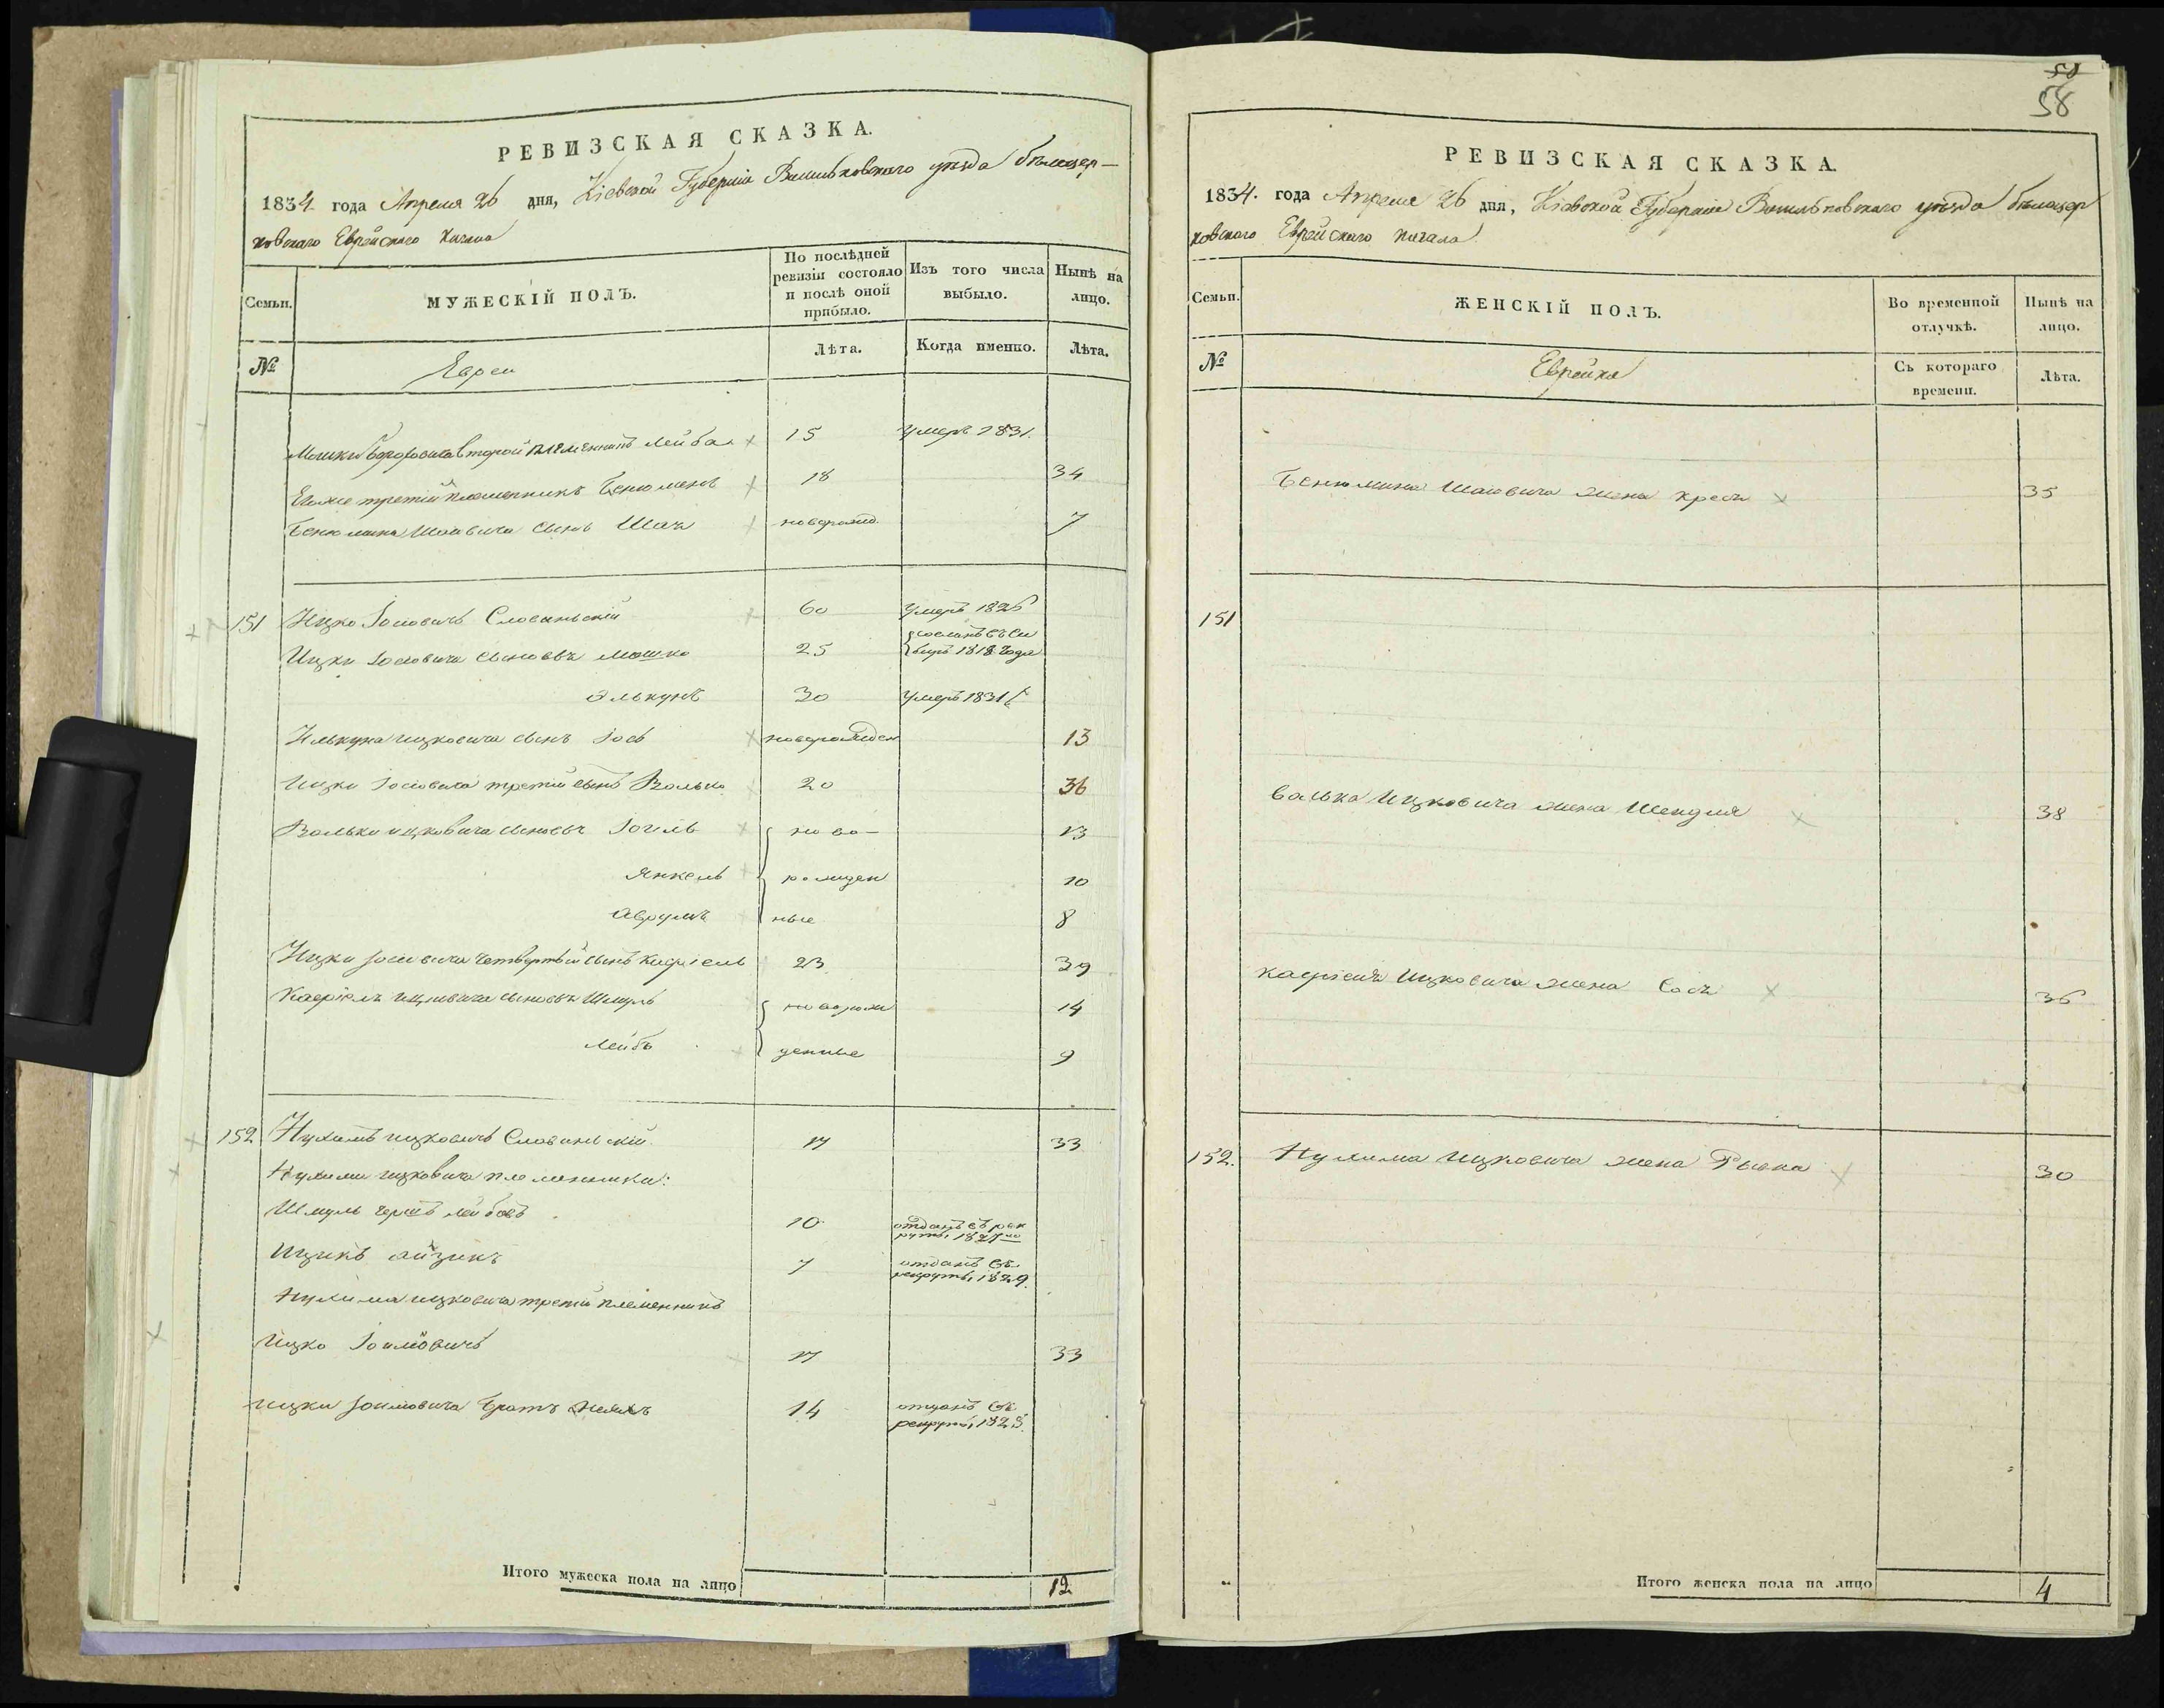 РЕВИЗСКАЯ СКАЗКА.
1834 года Апреля 26 дня, Кіевской Губерніи Васильковского уѣзда бѣлоцер-
ковского Еврейского Кагала
Семьи.
МУЖЕСКІЙ ПОЛЪ.
По послѣдней ревизіи состояло и послѣ оной прибыло.
Изъ того числа выбыло.
Нынѣ на лицо.
№
Евреи
Лѣта.
Когда именно.
Лѣта.
Мошки второй племенникъ Лейба 15 умеръ 1831.
Егоже третий племенникъ Бенюменъ 18 34
Бенюмина Шаивича сынъ Шая новорожд. 7
151 Ицко Іосіовичъ Словинскій 60 умеръ 1826
Ицки Іосіовича сыновья Мошко 25 сосланъ въ Си
биръ 1818 года
Элькунъ 30 умеръ 1831 г
Илькуна ицковича сынъ Іось новорожден 13
Ицки Іосіовича третій сынъ Волько 20 36
Вольки ицковича сыновья Іоиль ново- 13
Янкель рожден 10
Аврумъ ные 8
Ицки Іосиовича четвертый сынъ Касріель 23 39
Касріель ицковича сыновья Шмуль новорож 14
Лейбъ денные 9
152 Нухимъ ицковичъ Словинскій 17 33
Нухима ицковича племенники:
Шмуль Гершъ Лейбовъ 10 отданъ въ рек
руты, 1827го
Ицикъ айзикъ 7 отданъ въ
рекруты, 1829.
Нухима ицковича третій племенникъ
Ицко Іоимовичъ 17 33
Ицки Іоимовича братъ 14 отданъ въ
рекруты, 1828.
Итого мужеска пола на лицо 12
50
58
РЕВИЗСКАЯ СКАЗКА.
1834. года Апреля 26 дня, Кіевской Губерніи Васильковского уѣзда бѣлоцер
ковского Еврейского кагала.
Семьи.
ЖЕНСКІЙ ПОЛЪ.
Во временной отлучкѣ.
Нынѣ на лицо.
№
Еврейки
Съ котораго времени.
Лѣта.
Бенюмина Шаіовича жена Креся 35
151
Волька Ицковича жена Шендля 38
Касріеля Ицковича жена Сося 36
152. Нухима Ицковича жена Рывка 30
Итого женска пола на лицо 4